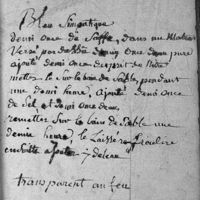 Bleu Simpatique
demi once de Saffre, dans un Matras
Versé par dessus demy once deau pure
ajouté demi once desprit de Nitre
mettez le sur le bain de Sable, pendant
une demie heure, ajouté demi once
de Sel, et demi once deau,
remettez Sur le bain de Sable une
demie heure, le Laissé refroidir
ensuitte ajouter deleau

transparent au feu